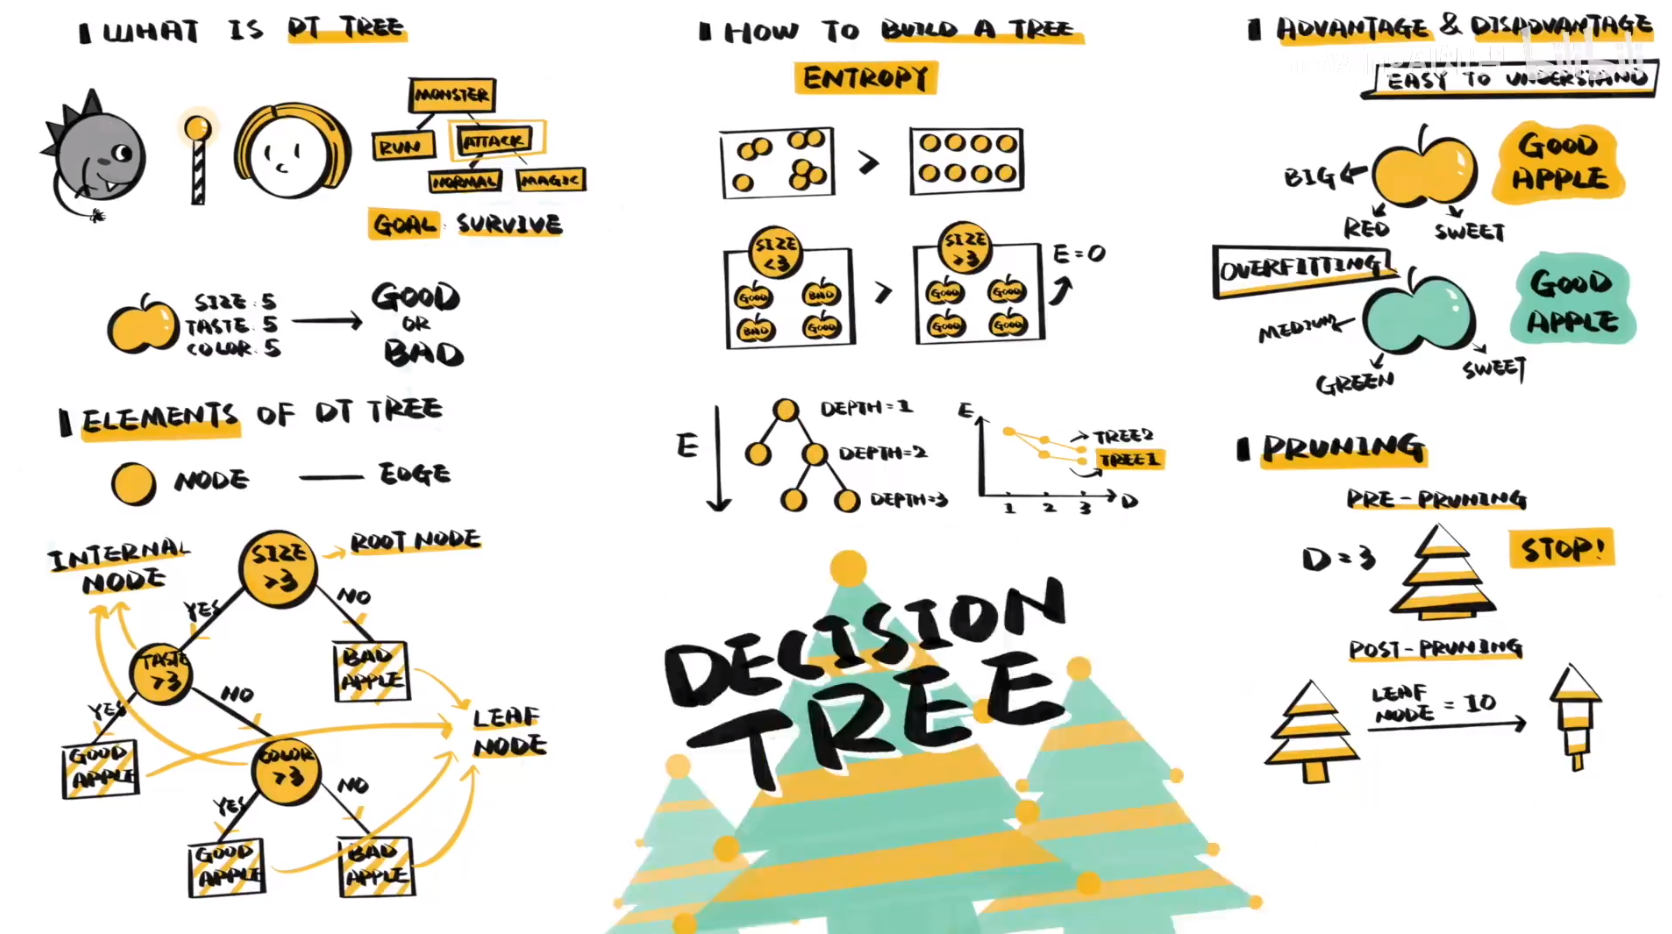 WHAT IS DT TREE
MONSTER
RUN
ATTACK
NORMAL
MAGIC
GOAL: SURVIVE
SIZE: 5
TASTE: 5
COLOR: 5
GOOD
OR
BAD
ELEMENTS OF DT TREE
NODE
EDGE
INTERNAL
NODE
SIZE
>3
ROOT NODE
YES
NO
TASTE
>3
BAD
APPLE
YES
NO
GOOD
APPLE
COLOR
>3
LEAF
NODE
YES
NO
GOOD
APPLE
BAD
APPLE
HOW TO BUILD A TREE
ENTROPY
>
SIZE
<3
GOOD
BAD
BAD
GOOD
>
SIZE
>3
GOOD
GOOD
GOOD
GOOD
E=0
E
DEPTH=1
DEPTH=2
DEPTH=3
E
TREE2
TREE1
1 2 3 D
DECISION
TREE
ADVANTAGE & DISADVANTAGE
EASY TO UNDERSTAND
BIG
RED
SWEET
GOOD
APPLE
OVERFITTING
MEDIUM
GREEN
SWEET
GOOD
APPLE
PRUNING
PRE-PRUNING
D=3
STOP!
POST-PRUNING
LEAF
NODE = 10